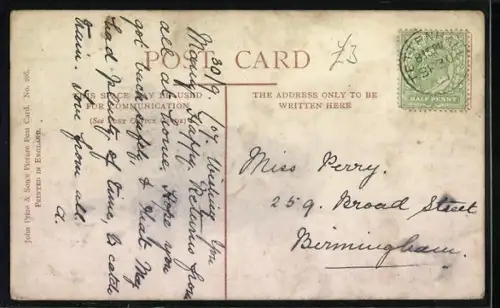 POST CARD
£3
THIS SPACE MAY BE USED
FOR COMMUNICATION.
(See Post Office Guide)
THE ADDRESS ONLY TO BE
WRITTEN HERE
HALF PENNY
30/9/07. Wishing you
Many Happy Returns from
all at home. Hope you
got back safely, & that May
had plenty of time, to catch
train. Love from all
a.
Miss Perry.
259. Broad Street
Birmingham.
John Dyde & Son's Picture Post Card. No. 206.
Printed in England.